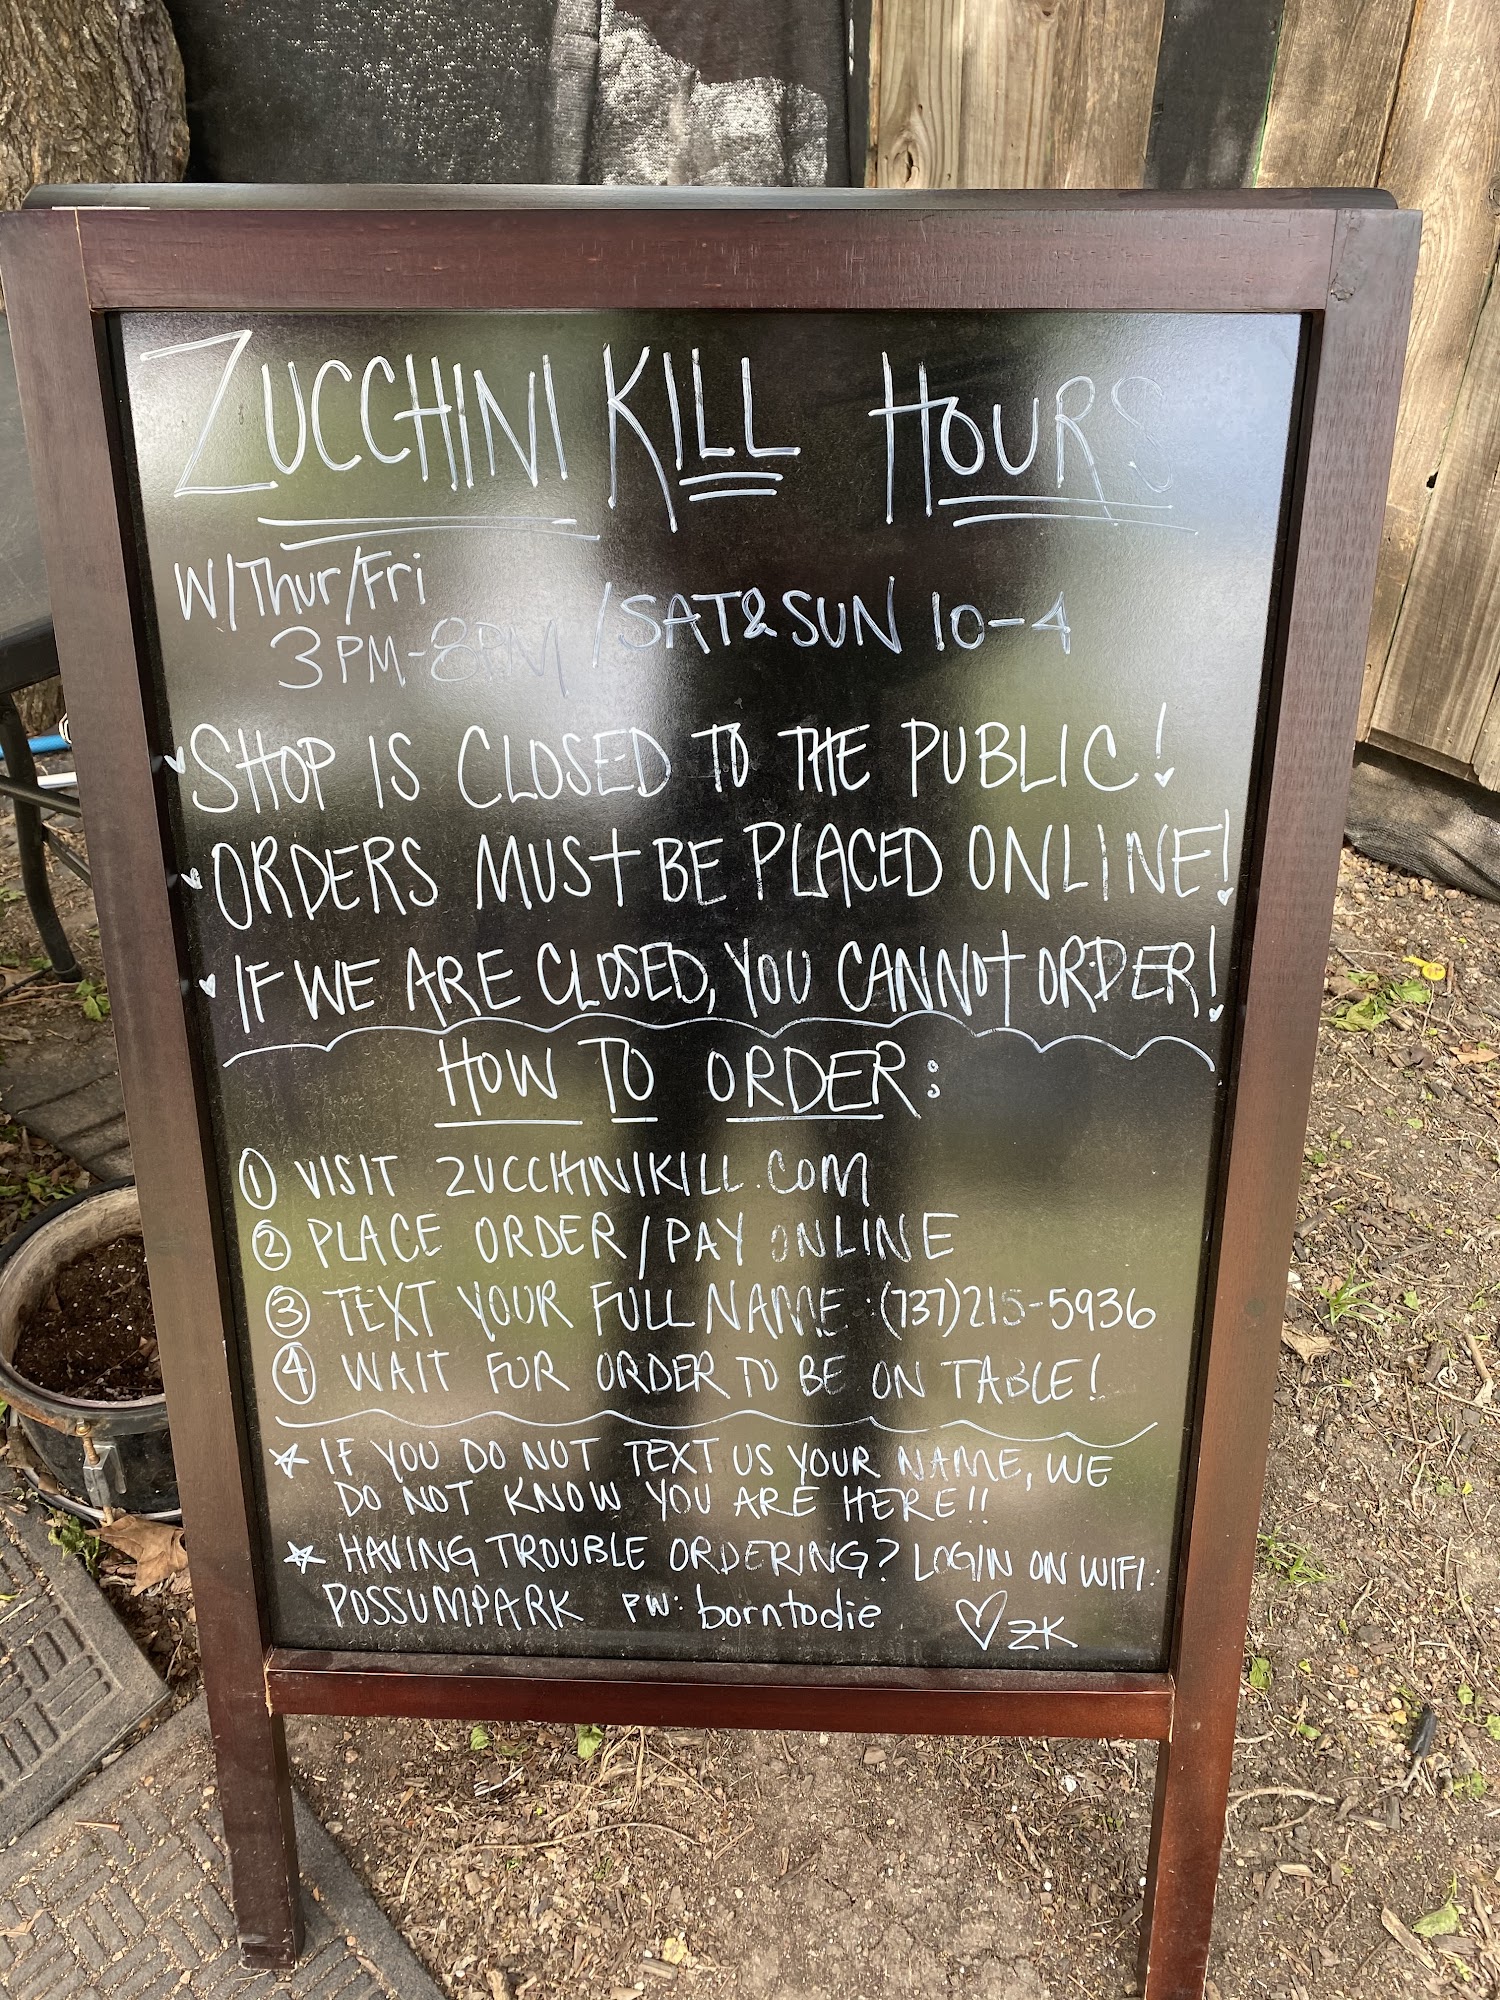 ZUCCHINI KILL HOURS
W/Thur/Fri
3PM-8PM /SAT&SUN 10-4
SHOP IS CLOSED TO THE PUBLIC!
ORDERS MUST BE PLACED ONLINE!
IF WE ARE CLOSED, YOU CANNOT ORDER!
HOW TO ORDER:
① VISIT ZUCCHINIKILL.COM
② PLACE ORDER/PAY ONLINE
③ TEXT YOUR FULL NAME:(737)215-5936
④ WAIT FOR ORDER TO BE ON TABLE!
☆ IF YOU DO NOT TEXT US YOUR NAME, WE
DO NOT KNOW YOU ARE HERE!!
☆ HAVING TROUBLE ORDERING? LOGIN ON WIFI:
POSSUMPARK PW: borntodie ♡ZK